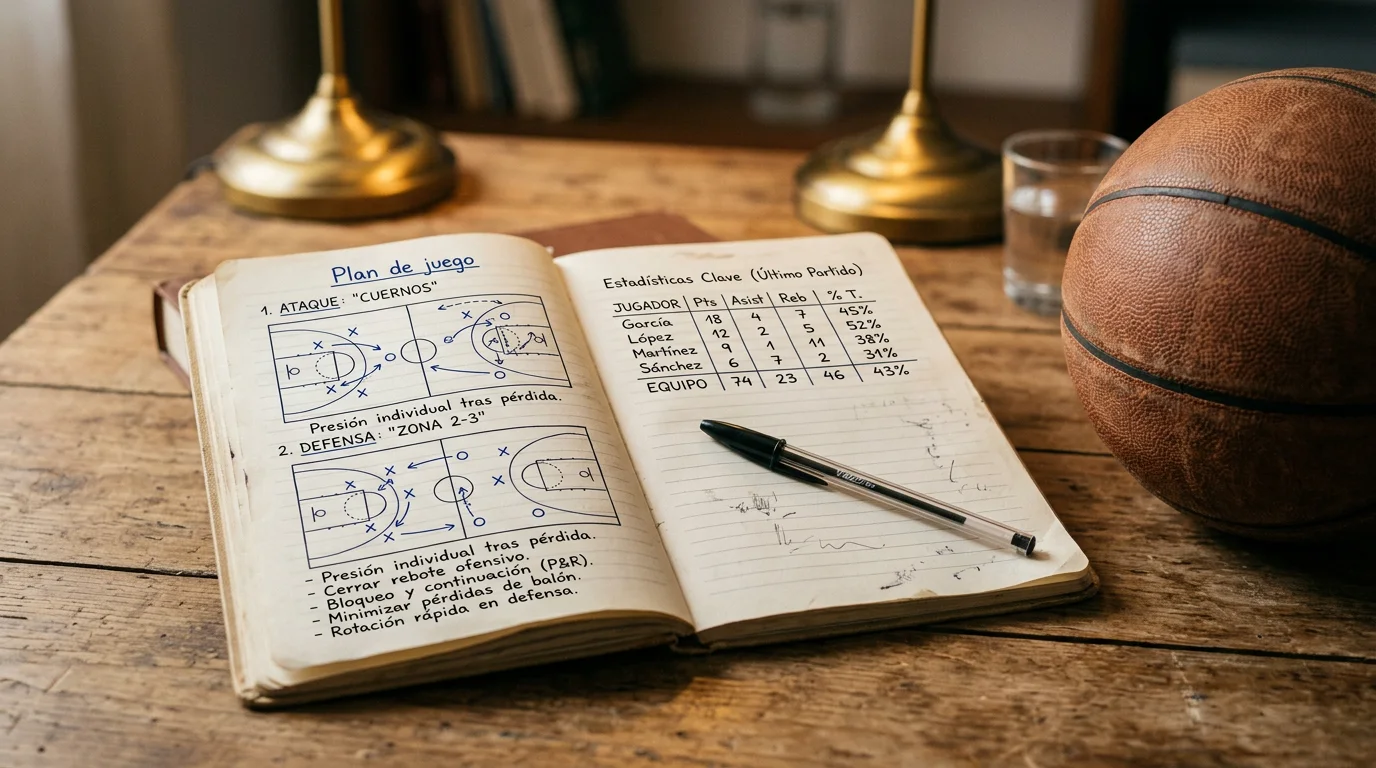 Plan de juego
1. ATAQUE: "CUERNOS"
Presión individual tras pérdida.
2. DEFENSA: "ZONA 2-3"
- Presión individual tras pérdida.
- Cerrar rebote ofensivo.
- Bloqueo y continuación (P&R).
- Minimizar pérdidas de balón.
- Rotación rápida en defensa.
Estadísticas Clave (Último Partido)
JUGADOR Pts Asist Reb % T.
García 18 4 7 45%
López 12 2 5 52%
Martínez 9 1 11 38%
Sánchez 6 7 2 31%
EQUIPO 74 23 46 43%